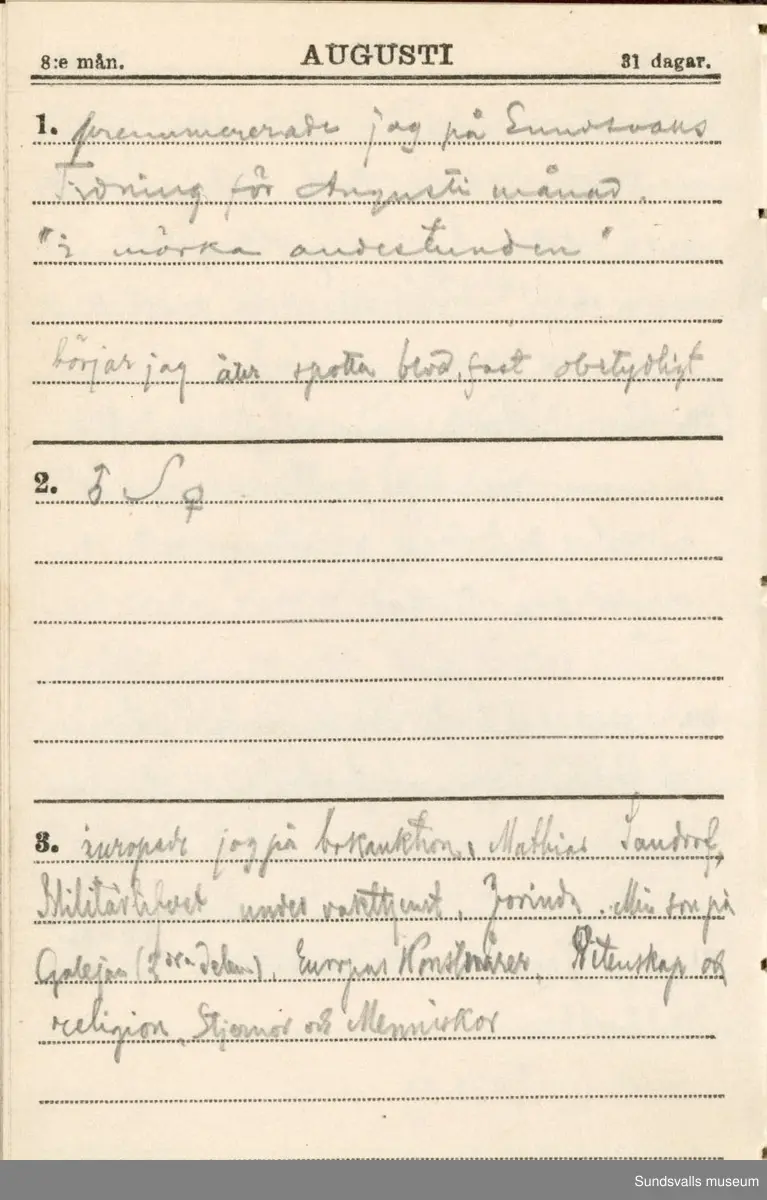 8:e mån. AUGUSTI 31 dagar.
1. prenummererade jag på Sundsvalls
Tidning för Augusti månad.
"i mörka andestunden"
börjar jag åter spotta blod, fast obetydligt
2.
3. inropade jag på bokauktion, Mathias Sandorf,
Militärlifvet under vakttjenst, Jorinda. Min son på
Galejan (2dra delen), Europas Konstnärer, Vitenskap och
religion, Stjernor och Menniskor
Sundsvalls museum